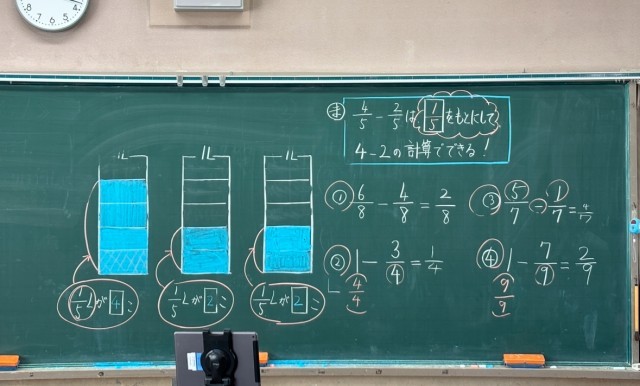 ま 4/5 − 2/5 は 1/5 をもとにして
4−2の計算でできる!
1L
1L
1L
1/5 Lが 4 こ
1/5 Lが 2 こ
1/5 Lが 2 こ
① 6/8 − 4/8 = 2/8
② 1 − 3/4 = 1/4
4/4
③ 5/7 − 1/7 = 4/7
④ 1 − 7/9 = 2/9
9/9